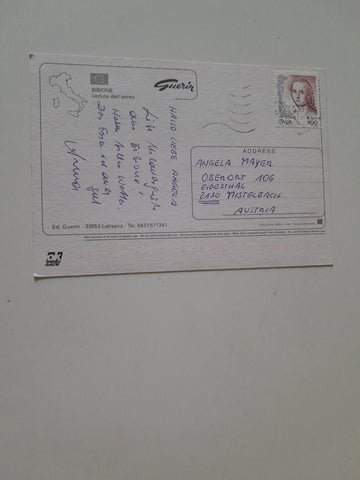 BIBIONE
Veduta dall'aereo
Guerin
HALLO LIEBE ANGELA
Liebe Urlaubsgrüße
aus Bibione!
Habe tolles Wetter.
Das Essen ist auch
gut
ITALIA
ADDRESS
ANGELA MAYER
OBERORT 106
EIBESTHAL
2130 MISTELBACH
AUSTRIA
Ed. Guerin - 33053 Latisana - Tel. 0431/511341
ok